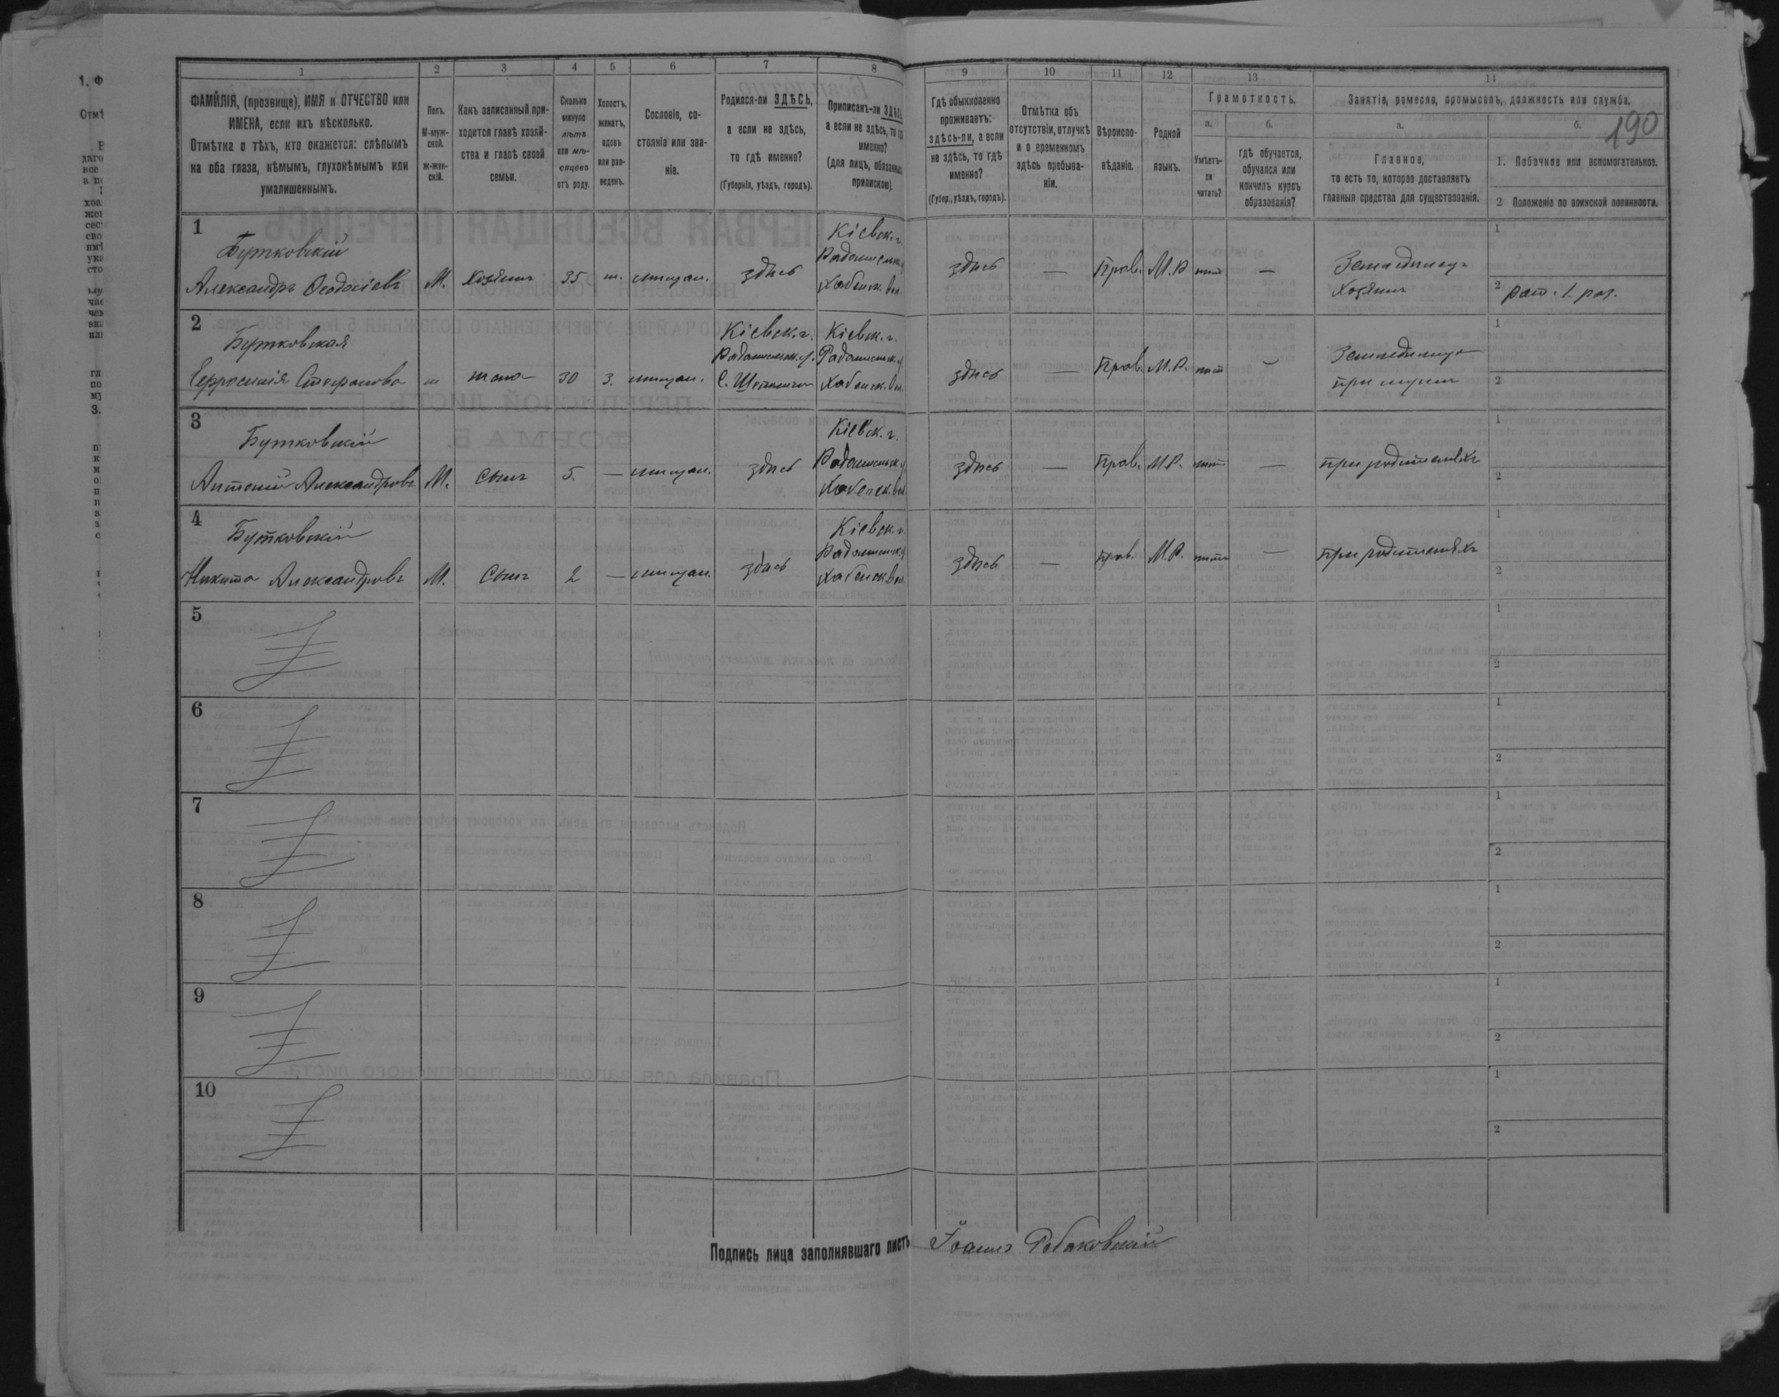 190
1 2 3 4 5 6 7 8 9 10 11 12 13 14
ФАМИЛІЯ, (прозвище), ИМЯ и ОТЧЕСТВО или
ИМЕНА, если ихъ нѣсколько.
Отмѣтка о тѣхъ, кто окажется: слѣпымъ
на оба глаза, нѣмымъ, глухонѣмымъ или
умалишеннымъ.
Полъ.
М-муж-
ской.
ж-жен-
скій.
Какъ записанный при-
ходится главѣ хозяй-
ства и главѣ своей
семьи.
Сколько
минуло
лѣтъ
или мѣ-
сяцевъ
отъ роду.
Холостъ,
женатъ,
вдовъ
или раз-
веденъ.
Сословіе, со-
стояніе или зва-
ніе.
Родился-ли ЗДѢСЬ,
а если не здѣсь,
то гдѣ именно?
(Губернія, уѣздъ, городъ).
Приписанъ-ли
а если не здѣсь, то
именно?
(для лицъ,
припискою).
Гдѣ обыкновенно
проживаетъ:
здѣсь-ли, а если
не здѣсь, то гдѣ
именно?
(Губер., уѣздъ, городъ).
Отмѣтка объ
отсутствіи, отлучкѣ
и о временномъ
здѣсь пребыва-
ніи.
Вѣроиспо-
вѣданіе.
Родной
языкъ.
Грамотность.
а.
Умѣетъ-
ли
читать?
б.
гдѣ обучается,
обучался или
кончилъ курсъ
образованія?
Занятіе, ремесло, промыселъ, должность или служба.
а.
Главное,
то есть то, которое доставляетъ
главныя средства для существованія.
б.
1. Побочное или вспомогательное.
2 Положеніе по воинской повинности.
1
Бутковскій
Александръ Ѳеодосіевъ М. Хозяинъ 35 ж. мѣщан. здѣсь
Кіевск. г.
Радомысльск. у.
Хабенск. вол.
здѣсь — Прав. М.Р. нѣтъ —
Земледѣлецъ
Хозяинъ
1
2 рат. 1. раз.
2
Бутковская
Ефросинія Стефанова ж жена 30 З. мѣщан.
Кіевск. г.
Радомысльск. у.
Кіевск. г.
Радомысльск. у
Хабенск. вол
здѣсь — Прав. М.Р. нѣтъ —
при мужѣ
1
2
3
Бутковскій
Антоній Александровъ М. Сынъ 5. — мѣщан. здѣсь
Кіевск. г.
Радомысльск. у
Хабенск. вол
здѣсь — Прав. М.Р. нѣтъ —
при родителяхъ
1
2
4
Бутковскій
Никита Александровъ М. Сынъ 2 — мѣщан. здѣсь
Кіевск. г
Радомысльск. у
Хабенск вол
здѣсь — Прав. М.Р. нѣтъ —
при родителяхъ
1
2
5
1
2
6
1
2
7
1
2
8
1
2
9
1
2
10
1
2
Подпись лица заполнявшаго листъ